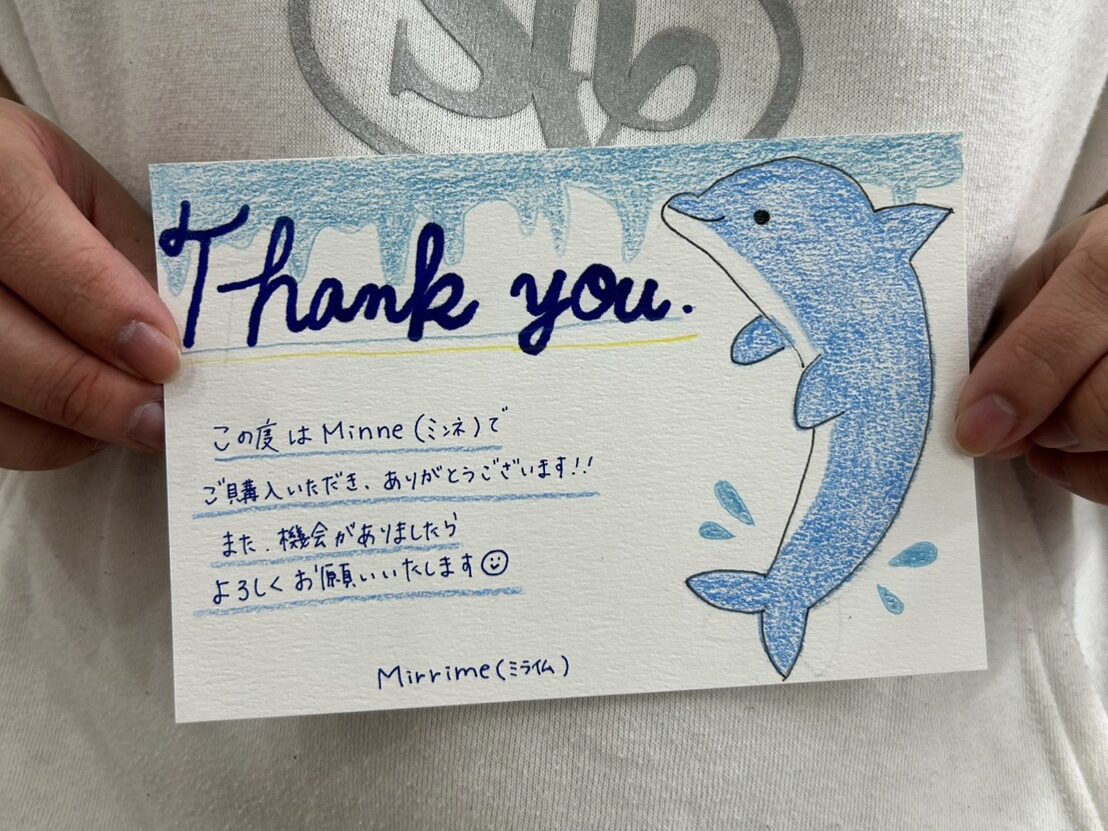 Thank you.
この度は Minne (ミンネ)で
ご購入いただき、ありがとうございます!!
また、機会がありましたら
よろしくお願いいたします☺
Mirrime(ミライム)